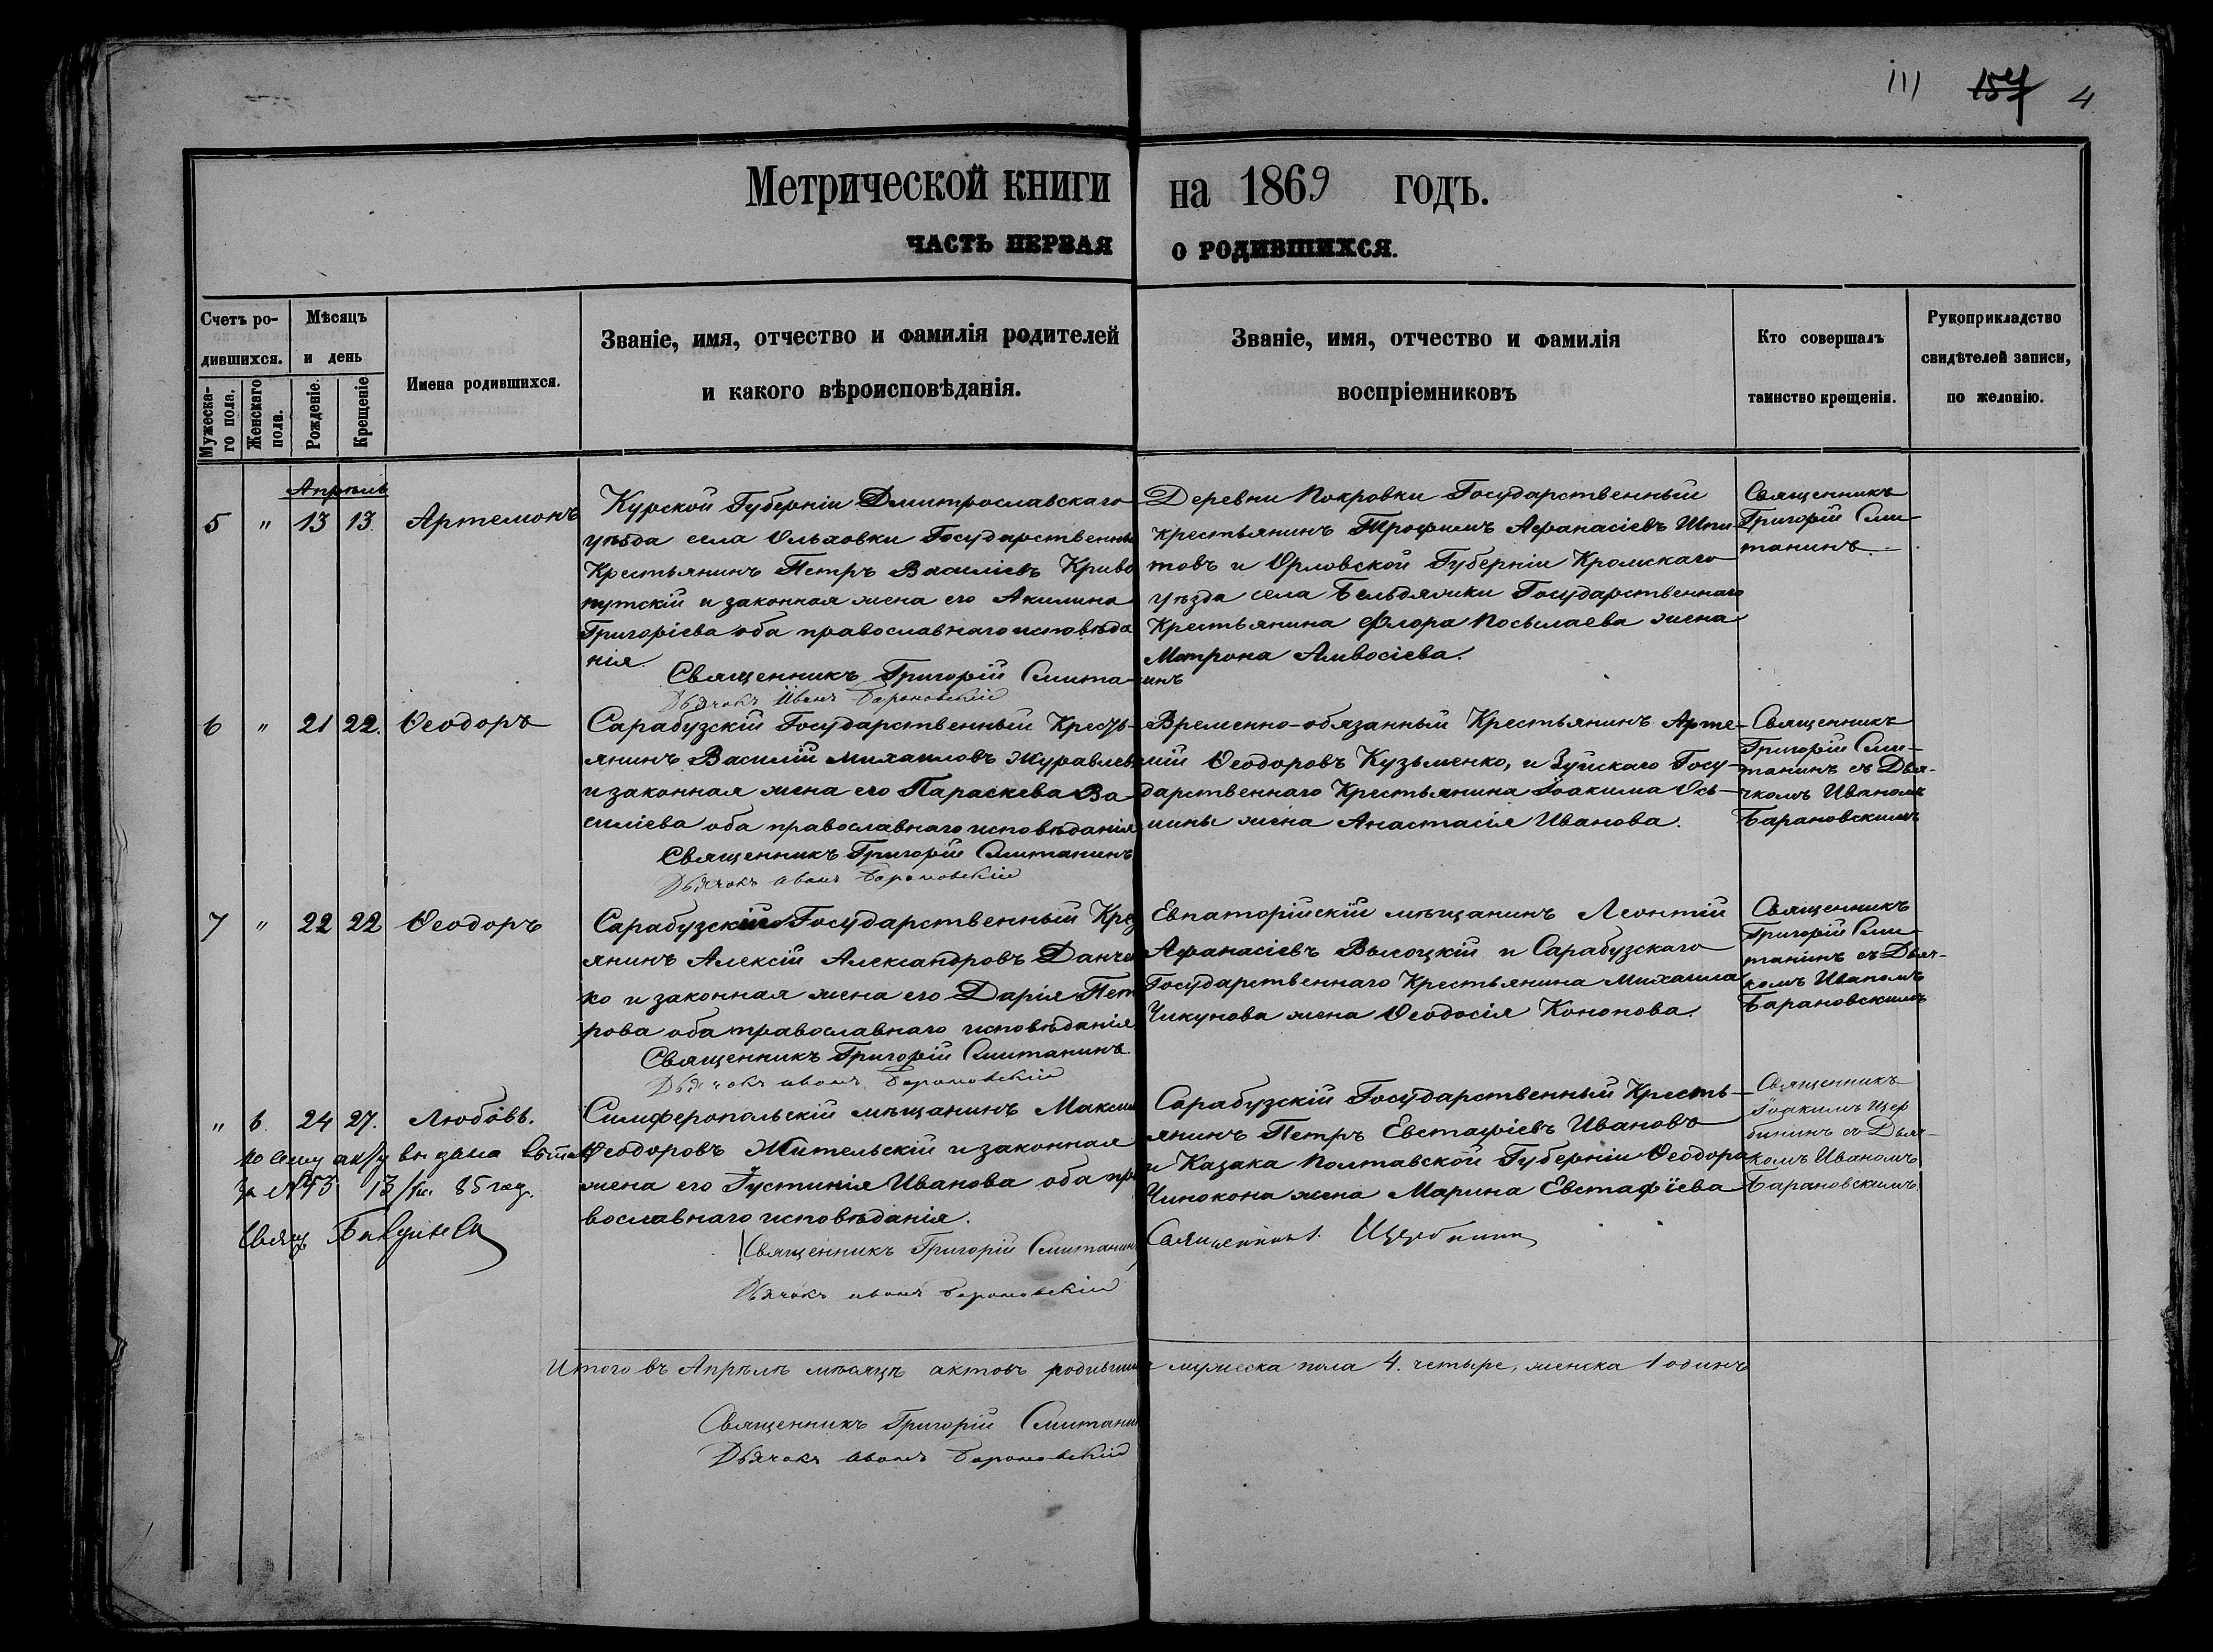 111 157 4
Метрической книги на 1869 годъ.
ЧАСТЬ ПЕРВАЯ О РОДИВШИХСЯ.
Счетъ ро-
дившихся.
Мужеска-
го пола.
Женскаго
пола.
Мѣсяцъ
и день
Рожденіе.
Крещеніе
Имена родившихся.
Званіе, имя, отчество и фамилія родителей
и какого вѣроисповѣданія.
Званіе, имя, отчество и фамилія
воспріемниковъ
Кто совершалъ
таинство крещенія.
Рукоприкладство
свидѣтелей записи,
по желанію.
Апрѣль
5 " 13 13 Артемонъ
Курской Губерніи Дмитрославскаго
уѣзда села Ольховки Государственны
Крестьянинъ Петръ Василіевъ Криво
путскій и законная жена его Акилина
Григоріева оба православнаго исповѣда
нія.
Священникъ Григорій Смита-инъ
Дьячокъ Иванъ Барановскій
Деревни Покровки Государственный
крестьянинъ Трофимъ Афанасіевъ Шпи-
товъ и Орловской Губерніи Кромскаго
уѣзда села Бельдяжки Государственнаго
Крестьянина Флора Посылаева жена
Матрона Амвосіева.
Священникъ
Григорій Сми-
танинъ.
6 " 21 22. Ѳеодоръ
Сарабузскій Государственный Кресть-
янинъ Василій Михаиловъ Журавлев
и законная жена его Параскева Ва
силіева оба православнаго исповѣданія
Священникъ Григорій Смитанинъ
Дьячокъ Иванъ Барановскій
Временно-обязанный Крестьянинъ Арте-
мій Ѳеодоровъ Кузьменко, и Зуйскаго Госу-
дарственнаго Крестьянина Іоакима Ось-
мины жена Анастасія Иванова.
Священникъ
Григорій Сми-
танинъ съ Дья-
чкомъ Иваномъ
Барановскимъ
7 " 22 22 Ѳеодоръ
Сарабузскій Государственный Крес
янинъ Алексій Александровъ Данчен
ко и законная жена его Дарія Пет
рова оба православнаго исповѣданія
Священникъ Григорій Смитанинъ.
Дьячокъ Иванъ Барановскій
Евпаторійскій мѣщанинъ Леонтій
Афанасіевъ Высоцкій и Сарабузскаго
Государственнаго Крестьянина Михаила
Чикунова жена Ѳеодосія Кононова.
Священникъ
Григорій Сми-
танинъ съ Дьяч-
комъ Иваномъ
Барановскимъ
" 6 24 27. Любовь.
По сему акту выдана
за № 43 85 год.
Свящ
Симферопольскій мѣщанинъ Максим
Ѳеодоровъ Жительскій и законная
жена его Іустинія Иванова оба пра
вославнаго исповѣданія.
Священникъ Григорій Смитанин
Дьячокъ Иванъ Барановскій
Сарабузскій Государственный Кресть-
янинъ Петръ Евстафіевъ Ивановъ
и Казака Полтавской Губерніи Ѳеодора
Чинокона жена Марина Евстафіева
Священникъ Щербинин
Священникъ
Іоакимъ Щер
бининъ съ Дьяч-
комъ Иваномъ
Барановскимъ.
Итого въ Апрѣлѣ мѣсяцѣ актовъ родивших мужеска пола 4. четыре, женска 1 одинъ
Священникъ Григорій Смитани
Дьячокъ Иванъ Барановскій